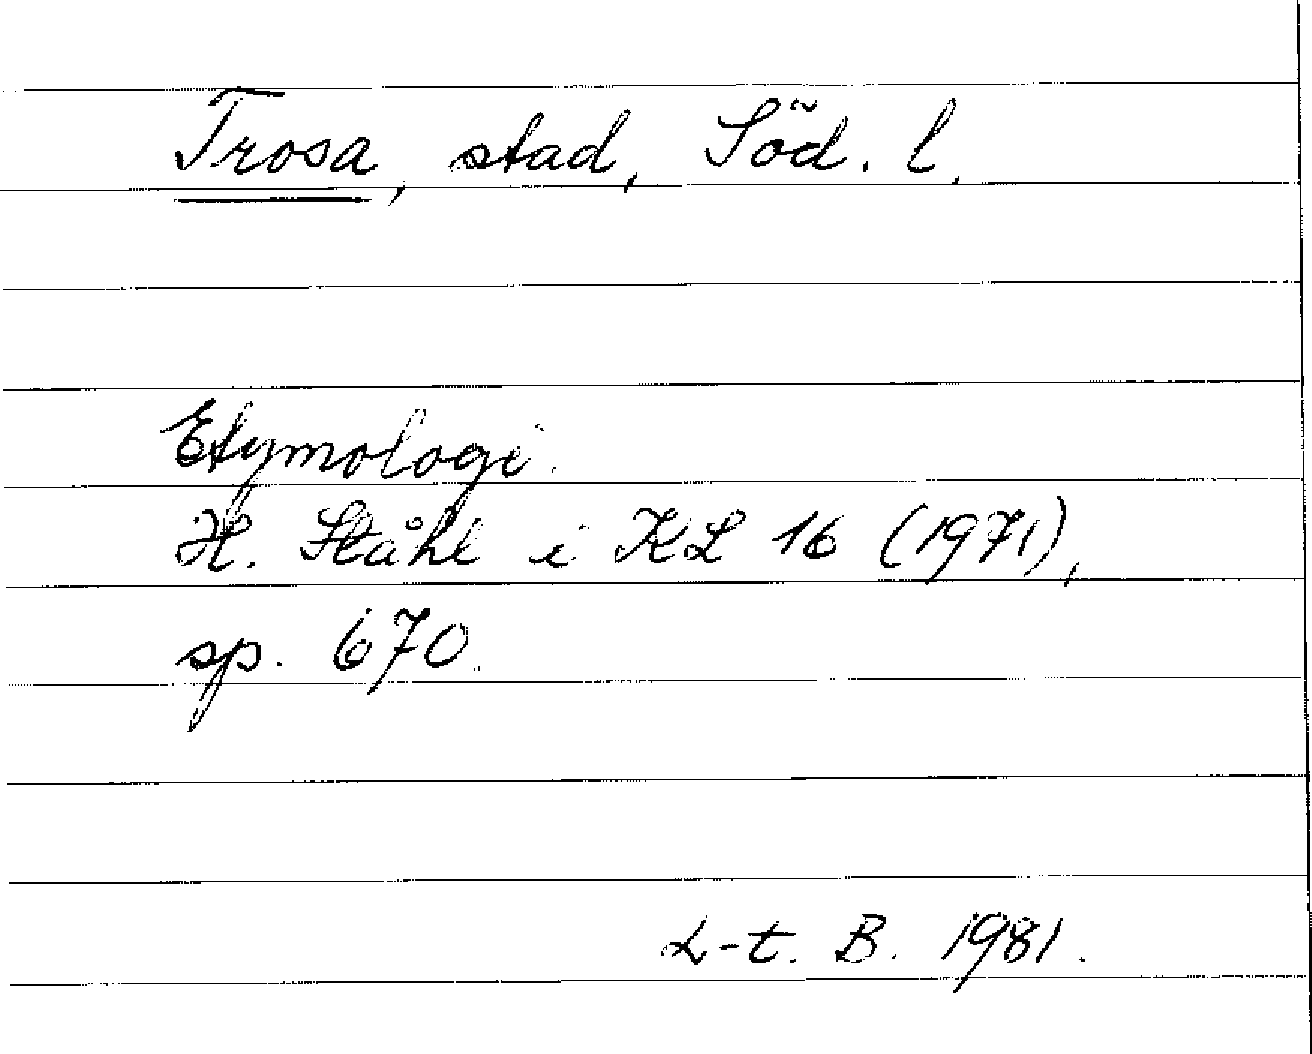 Trosa, stad, Söd. l.
Etymologi.
H. Ståhl i KL 16 (1971),
sp. 670.
L-t. B. 1981.